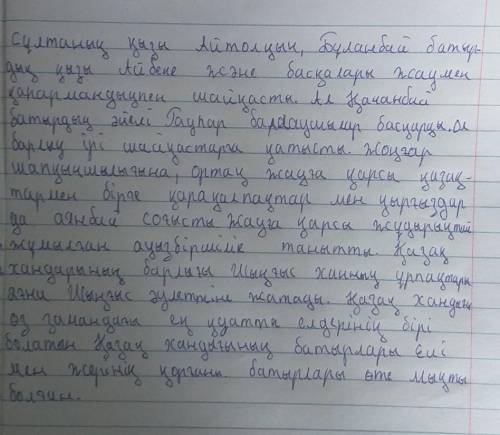 Сұлтаның қызы Айтолқын, Бұланбай батыр-
дың қызы Айбене және басқалары жаумен
қаһармандықпен шайқасты. Ал Қачанбай
батырдың әйелі Гауһар барлаушылар басқарды. Ол
барлық ірі шайқастарға қатысты. Жоңғар
шапқыншылығына, ортақ жауға қарсы қазақ-
тармен бірге қарақалпақтар мен қырғыздар
да аянбай соғысты жауға қарсы жұдырықтай
жұмылған ауызбіршілік танытты. Қазақ
хандарының барлығы Шыңғыс ханның ұрпақтары
яғни Шыңғыс әулетіне жатады. Қазақ хандығы
өз замандағы ең қуатты елдерінің бірі
болатөн Қазақ хандығының батырлары Елі
мен жерінің қорғаны батырлары өте мықты
болған.